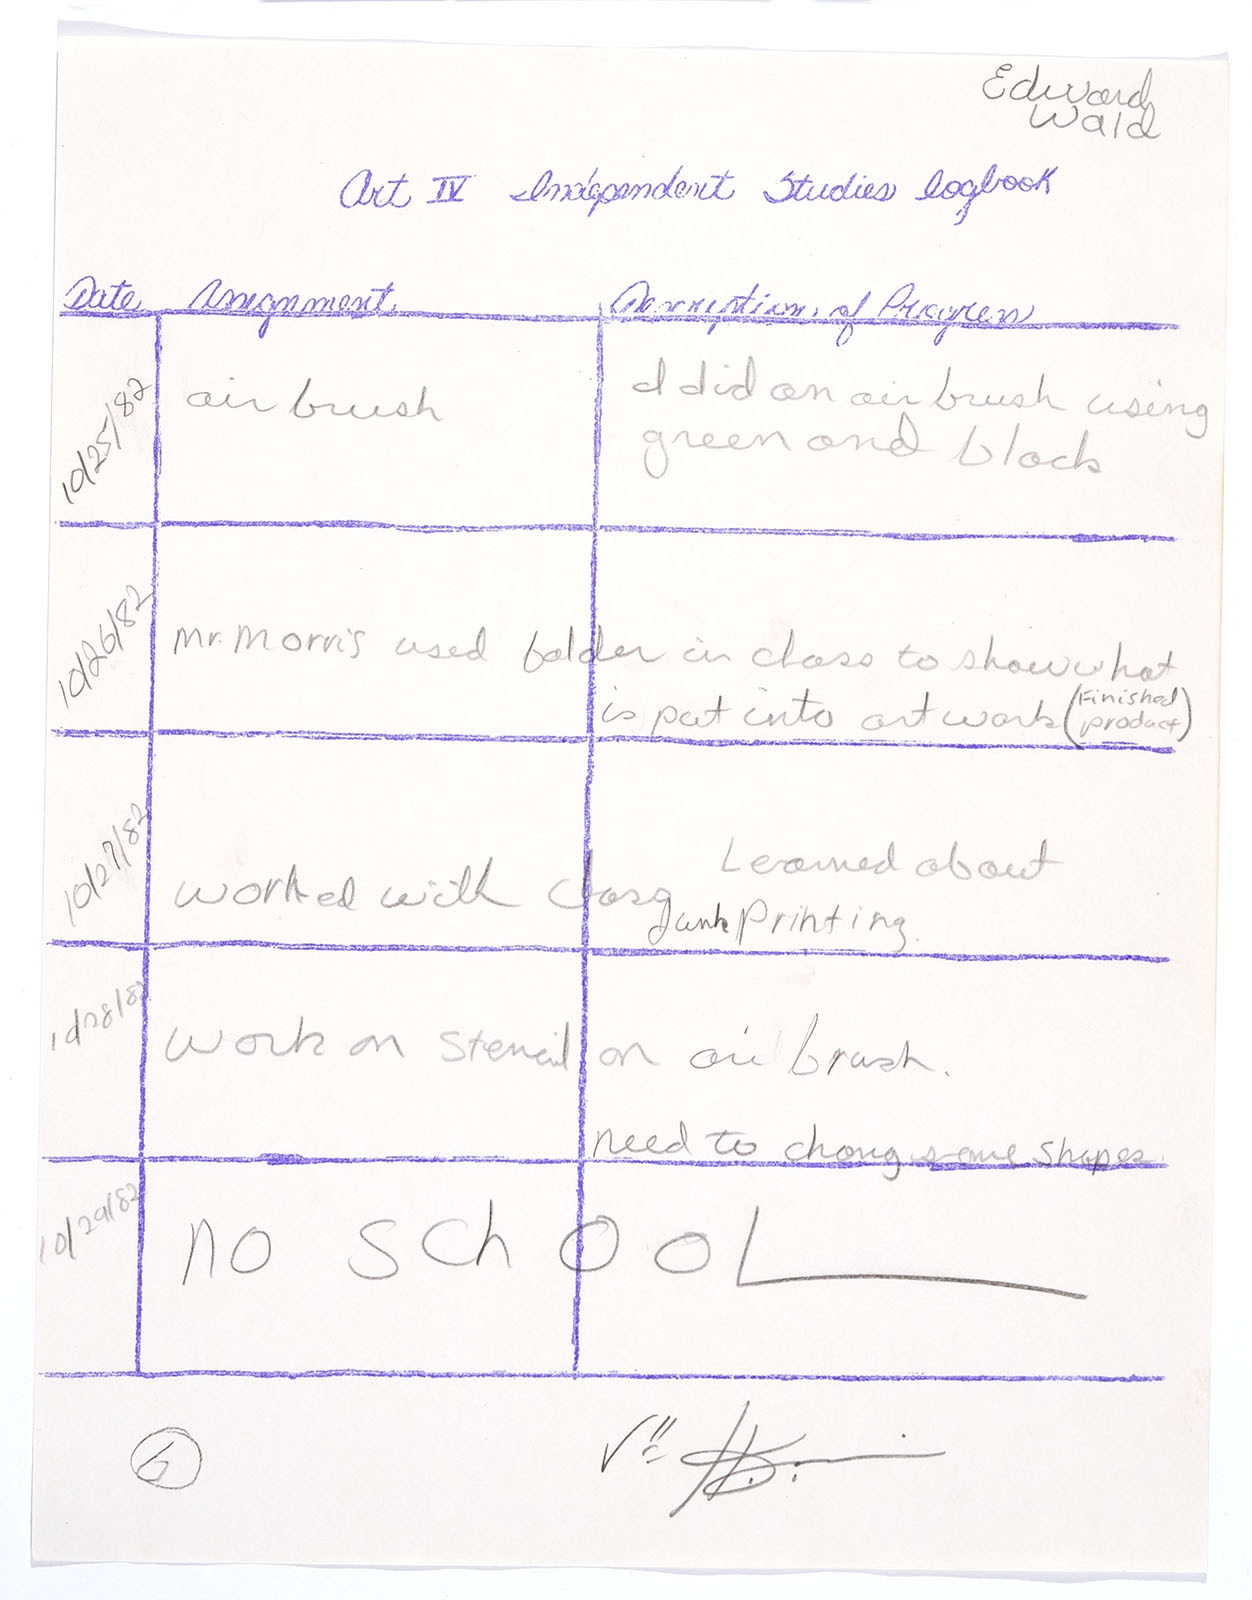 Edward
Wald
Art IV Independent Studies logbook
Date Assignment Description of Progress
10/25/82 air brush I did an air brush using
green and black
10/26/82 Mr. Morris used folder in class to show what
is put into art work (Finished
product)
10/27/82 worked with class Learned about
Junk printing.
10/28/82 work on stencil on air brush.
need to chang some shapes.
10/29/82 no SChOOL
6